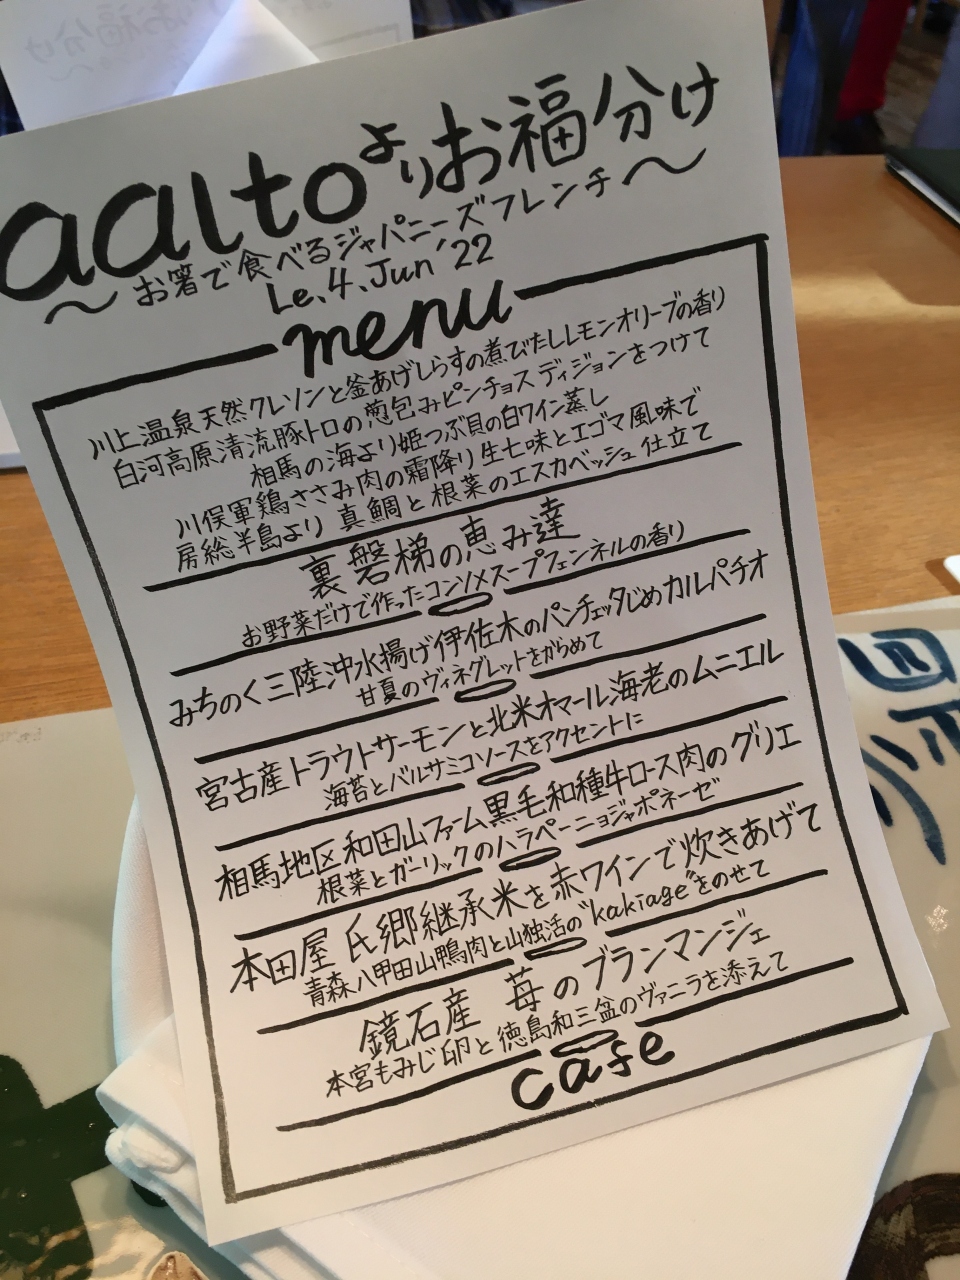 aaltoよりお福分け
〜お箸で食べるジャパニーズフレンチ〜
Le.4.Jun'22
menu
川上温泉天然クレソンと釜あげしらすの煮びたしレモンオリーブの香り
白河高原清流豚トロの葱包みピンチョスディジョンをつけて
相馬の海より姫つぶ貝の白ワイン蒸し
川俣軍鶏ささみ肉の霜降り生七味とエゴマ風味で
房総半島より 真鯛と根菜のエスカベッシュ仕立て
裏磐梯の恵み達
お野菜だけで作ったコンソメスープフェンネルの香り
みちのく三陸沖水揚げ伊佐木のパンチェッタじめカルパチオ
甘夏のヴィネグレットをがらめて
宮古産トラウトサーモンと北米オマール海老のムニエル
海苔とバルサミコソースをアクセントに
相馬地区和田山ファーム黒毛和種牛ロース肉のグリエ
根菜とガーリックのハラペーニョジャポネーゼ
本田屋 氏郷継承米を赤ワインで炊きあげて
青森八甲田山鴨肉と山独活の"kakiage"をのせて
鏡石産 苺のブランマンジェ
本宮もみじ卵と徳島和三盆のヴァニラを添えて
cafe